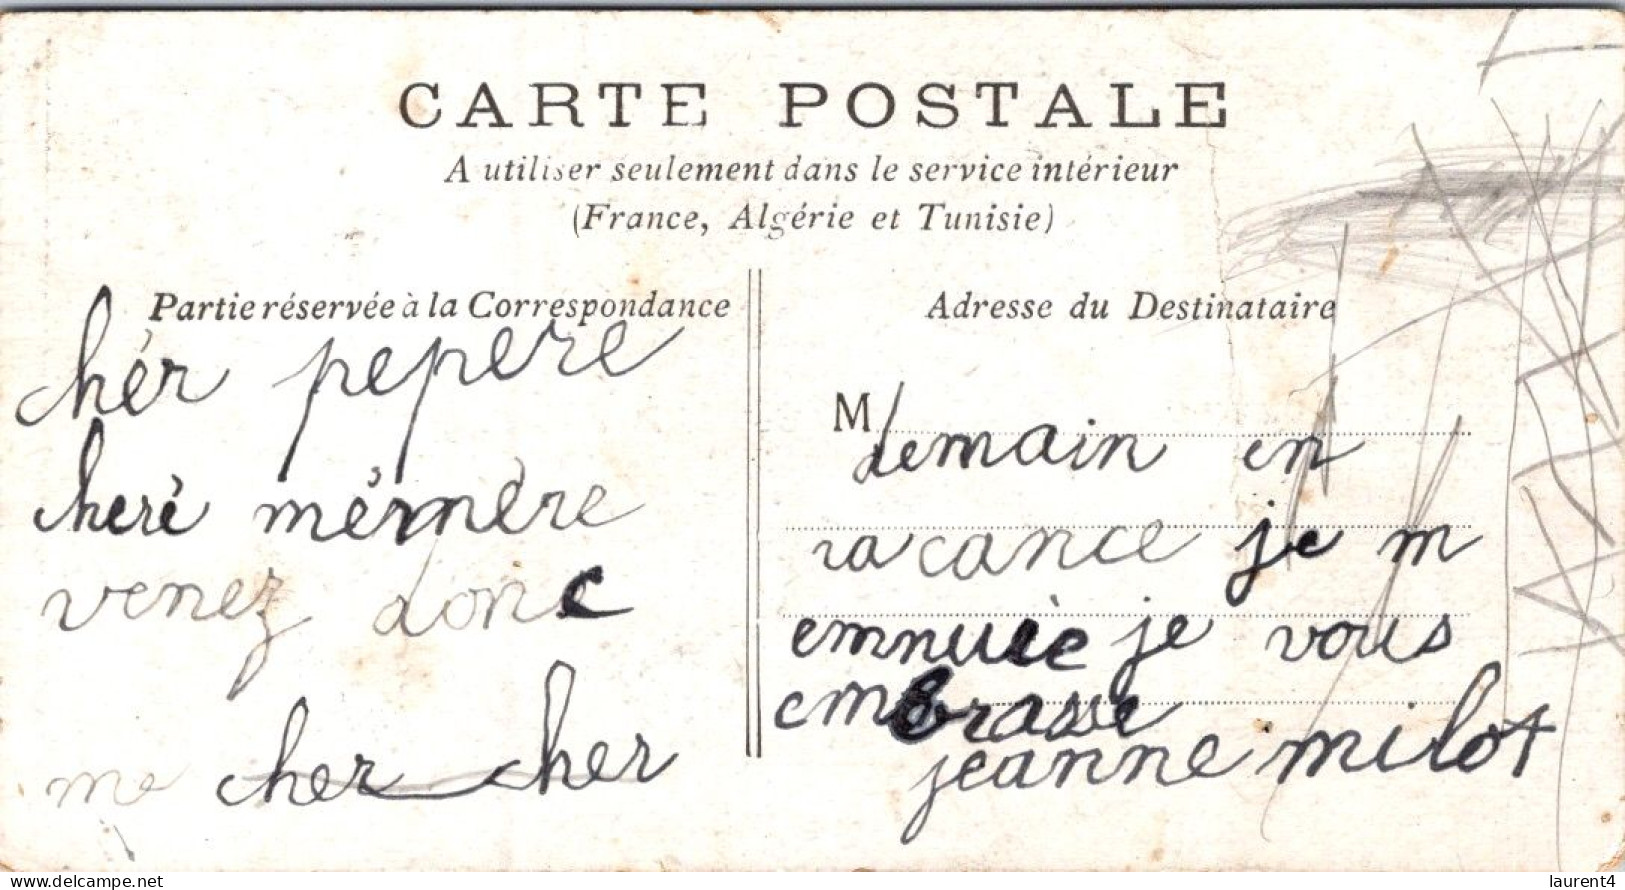 CARTE POSTALE
A utiliser seulement dans le service intérieur
(France, Algérie et Tunisie)
Partie réservée à la Correspondance
chér pepere
cheré mémère
venez donc
me cher cher
Adresse du Destinataire
M
demain en
vacance je m
emnuiè je vous
embrasse
jeanne milot
laurent4